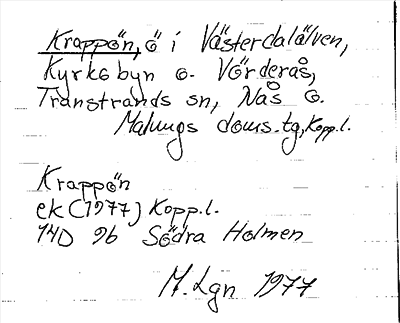 Krappön, ö i Västerdalälven,
Kyrkobyn o. Vörderås,
Transtrands sn, Nås o.
Malungs doms.tg, Kopp.l.
Krappön
ek (1977) Kopp.l.
14D 9b Södra Holmen
M.Lgn 1977